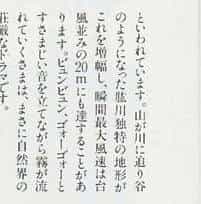 といわれています。山が川に迫り谷
のようになった肱川独特の地形が
これを増幅し、瞬間最大風速は台
風並みの20mにも達することがあ
ります。ビュンビュン、ゴォーゴォーと
すさまじい音を立てながら霧が流
れていくさまは、まさに自然界の
荘厳なドラマです。